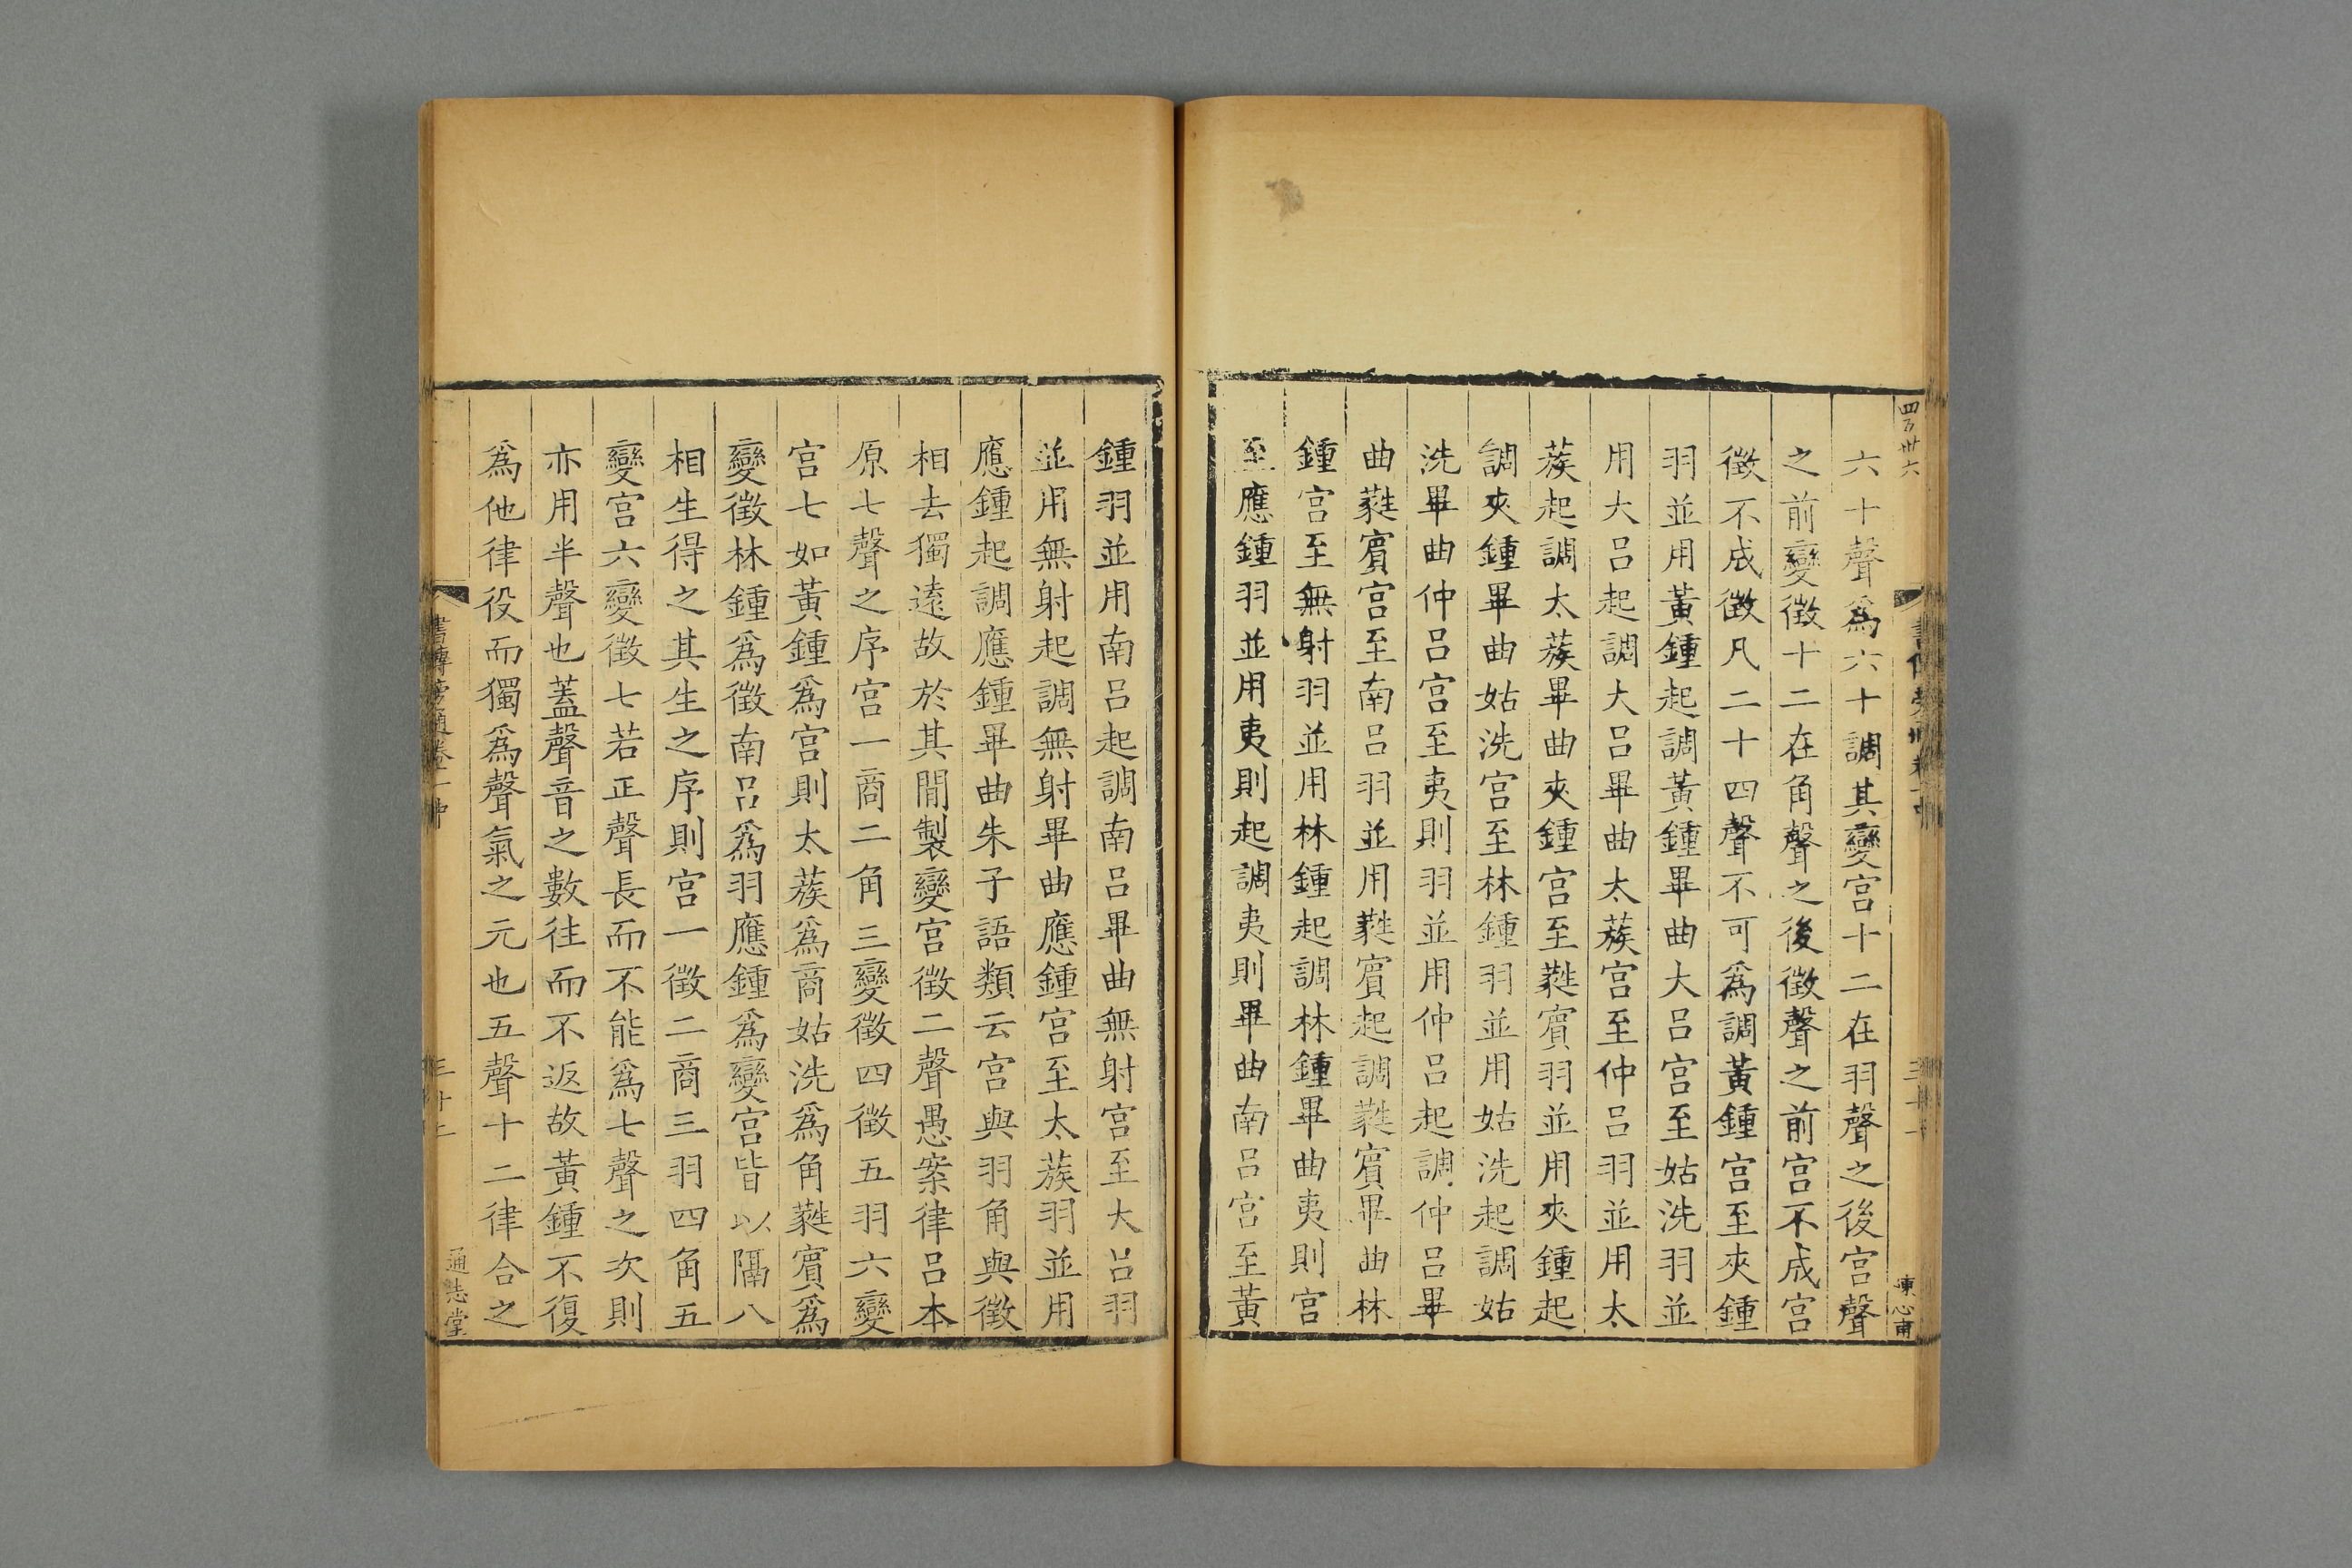 四百卅六
六十聲爲六十調其變宫十二在羽聲之後宫聲
之前變徵十二在角聲之後徵聲之前宫不成宫
徵不成徵凡二十四聲不可爲調黃鍾宫至夾鍾
羽並用黃鍾起調黃鍾畢曲大吕宫至姑洗羽並
用大吕起調大吕畢曲太蔟宫至仲吕羽並用太
蔟起調太蔟畢曲夾鍾宫至蕤賓羽並用夾鍾起
調夾鍾畢曲姑洗宫至林鍾羽並用姑洗起調姑
洗畢曲仲吕宫至夷則羽並用仲吕起調仲吕畢
曲蕤賓宫至南吕羽並用蕤賓起調蕤賓畢曲林
鍾宫至無射羽並用林鍾起調林鍾畢曲夷則宫
至應鍾羽並用夷則起調夷則畢曲南吕宫至黃
鍾羽並用南吕起調南吕畢曲無射宫至大吕羽
並用無射起調無射畢曲應鍾宫至太蔟羽並用
應鍾起調應鍾畢曲朱子語類云宫與羽角與徵
相去獨遠故於其間製變宫徵二聲愚案律吕本
原七聲之序宫一商二角三變徵四徵五羽六變
宫七如黃鍾爲宫則太蔟爲商姑洗爲角蕤賓爲
變徵林鍾爲徵南吕爲羽應鍾爲變宫皆以隔八
相生得之其生之序則宫一徵二商三羽四角五
變宫六變徵七若正聲長而不能爲七聲之次則
亦用半聲也蓋聲音之數往而不返故黃鍾不復
爲他律役而獨爲聲氣之元也五聲十二律合之
書傳旁通卷一中
通志堂